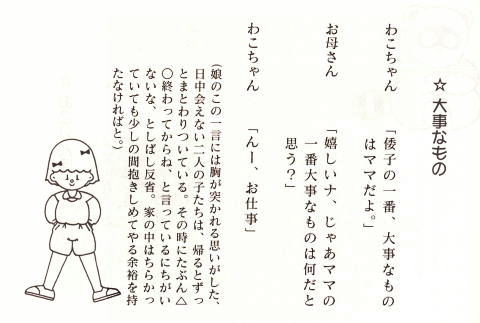 ☆ 大事なもの
わこちゃん 「倭子の一番、大事なもの
はママだよ。」
お母さん 「嬉しいナ、じゃあママの
一番大事なものは何だと
思う?」
わこちゃん 「んー、お仕事」
(娘のこの一言には胸が突かれる思いがした、
日中会えない二人の子たちは、帰るとずっ
とまとわりついている。その時にたぶん△
〇終わってからね、と言っているにちがい
ないな、としばし反省。家の中はちらかっ
ていても少しの間抱きしめてやる余裕を持
たなければと。)